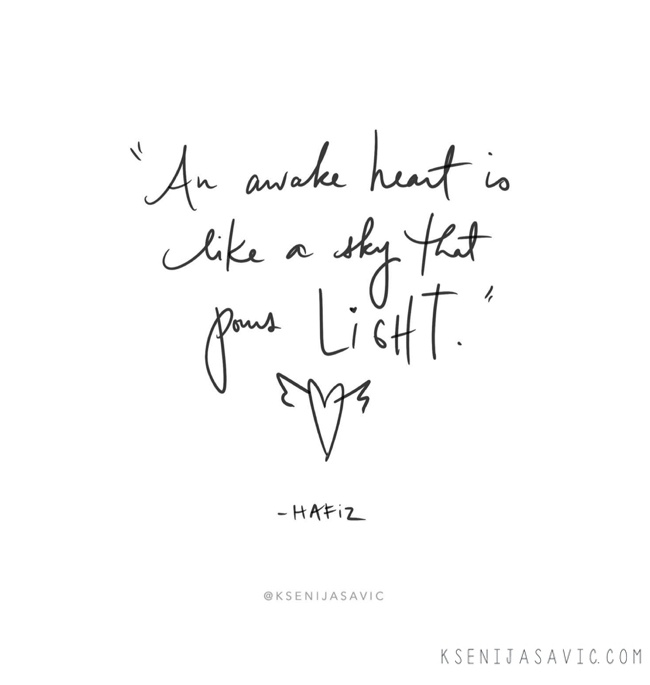 "An awake heart is
like a sky that
pours LiGHT."
-HAFiZ
@KSENIJASAVIC
KSENIJASAVIC.COM